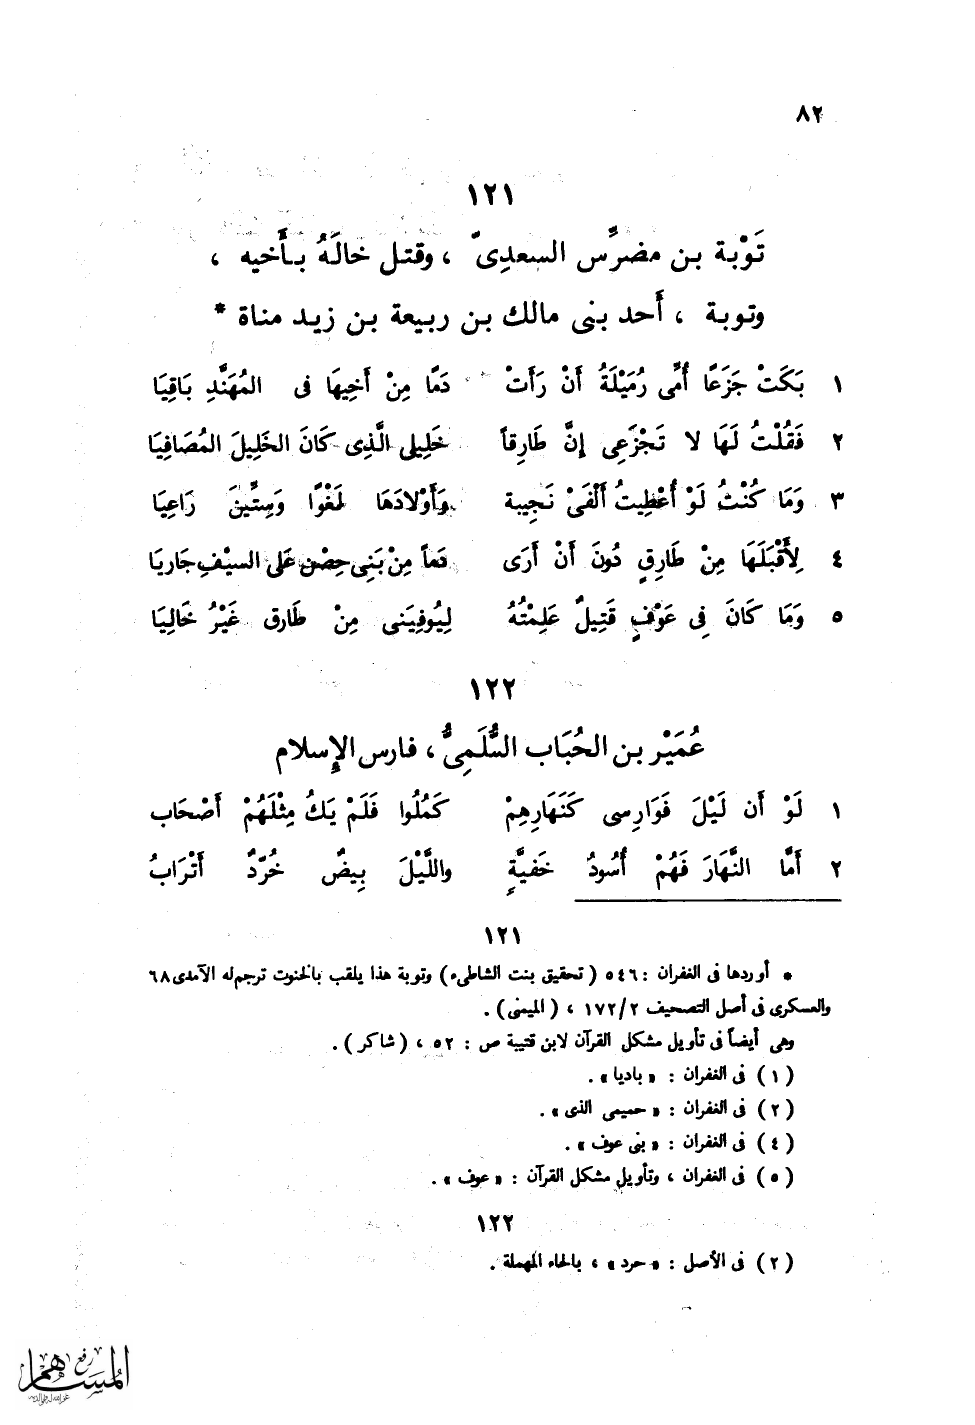 ٨٢
١٢١
تَوْبة بن مضرِّس السعدِىّ ، وقتل خالَهُ بأَخيه ،
وتوبة ، أَحد بنى مالك بن ربيعة بن زيد مناة *
١ بَكَتْ جَزَعًا أُمِّى رُمَيْلَةُ أَنْ رَأَتْ دَمًا مِنْ أَخِيهَا فى المُهَنَّدِ بَاقِيَا
٢ فَقُلْتُ لَهَا لا تَجْزَعِى إِنَّ طَارِقاً خَلِيلِى الَّذِى كَانَ الخَلِيلَ المُصَافِيَا
٣ وَمَا كُنْتُ لَوْ أُعْطِيتُ أَلْفَىْ نَجِيبة وَأَوْلادَهَا لَغْوًا وَسِتِّينَ رَاعِيَا
٤ لِأَقْبَلَهَا مِنْ طَارِقٍ دُونَ أَنْ أَرَى دَماً مِنْ بَنِى حِصْنٍ عَلَى السيْفِ جَارِيَا
٥ وَمَا كَانَ فِى عَوْفٍ قَتِيلٌ عَلِمْتُهُ لِيُوفِيَنى مِنْ طَارِق غَيْرُ خَالِيَا
١٢٢
عُمَيْر بن الحُبَاب السُّلَمِىُّ ، فارس الإِسلام
١ لَوْ أَن لَيْلَ فَوَارِسى كَنَهَارِهِمْ كَمُلُوا فَلَمْ يَكُ مِثْلَهُمْ أَصْحَاب
٢ أَمَّا النَّهَارَ فَهُمْ أُسُودُ خَفيَّةٍ واللَّيْلَ بِيضٌ خُرَّدٌ أَتْرَابُ
١٢١
* أوردها فى الغفران : ٥٤٦ ( تحقيق بنت الشاطىء ) وتوبة هذا يلقب بالخنوت ترجم له الآمدى ٦٨
والعسكرى فى أصل التصحيف ١٧٢/٢ ، ( الميمنى ) .
وهى أيضاً فى تأويل مشكل القرآن لابن قتيبة ص : ٥٢ ، ( شاكر ) .
( ١ ) فى الغفران : « باديا » .
( ٢ ) فى الغفران : « حميمى الذى » .
( ٤ ) فى الغفران : « بنى عوف » .
( ٥ ) فى الغفران ، وتأويل مشكل القرآن : « عوف » .
١٢٢
( ٢ ) فى الأصل : « حرد » ، بالحاء المهملة .
رفع
المساهم